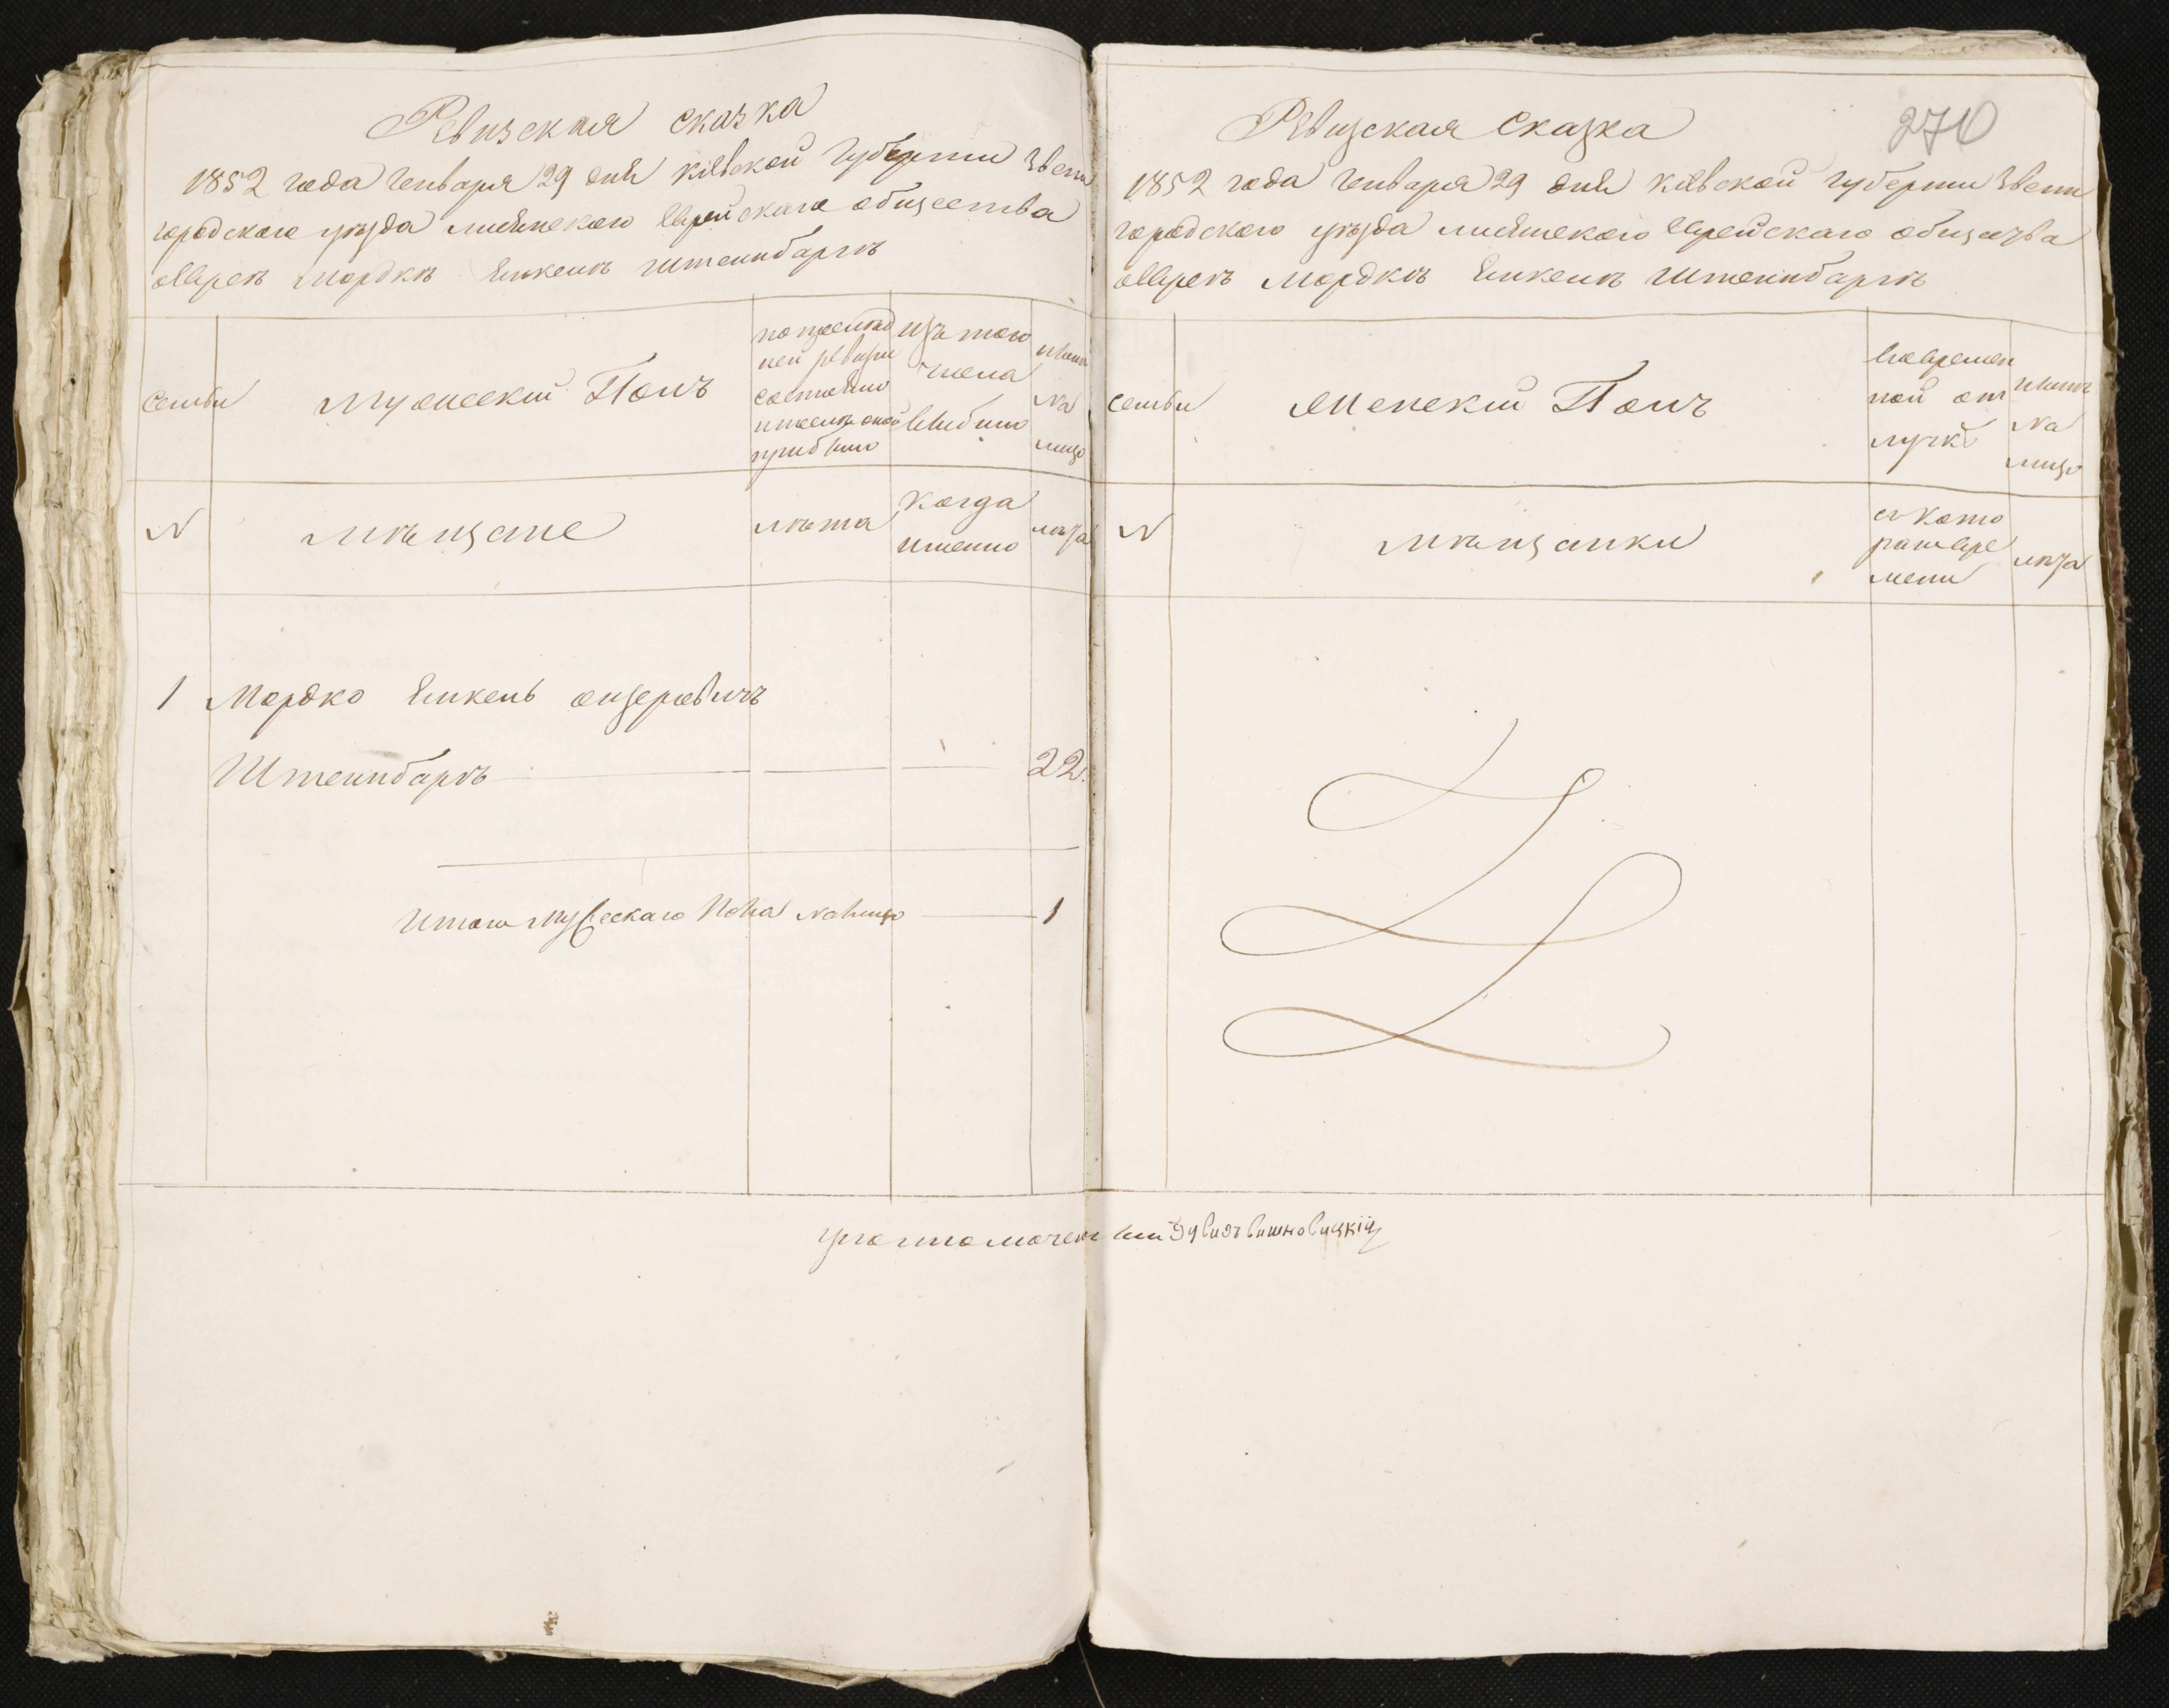 Ревизская сказка
1852 года генваря 29 дня кіевской губерніи Звени
городского уѣзда лисянского еврейского общества
о евреѣ Мордкѣ Янкелѣ Штейнбаргѣ
Семьи
Мужескій Полъ
по последней ревизіи состояло и после оной прибыло
Изъ того числа выбыло
Ныне на лицо
№
мѣщане
лѣта
когда именно
лѣта
1 Мордко Янкель
Штейнбаргъ 22.
Итого мужескаго пола на лицо 1
270
Ревизская Сказка
1852 года генваря 29 дня кіевской губерніи Звени
городского уѣзда лисянского еврейскаго общества
о евреѣ Мордкѣ Янкелѣ Штейнбаргѣ
Семьи
Женскій Полъ
Во временной отлучкѣ
Ныне на лицо
№
мѣщанки
съ котораго времени
лѣта
Уполномоченный Дувидъ Вишновицкій